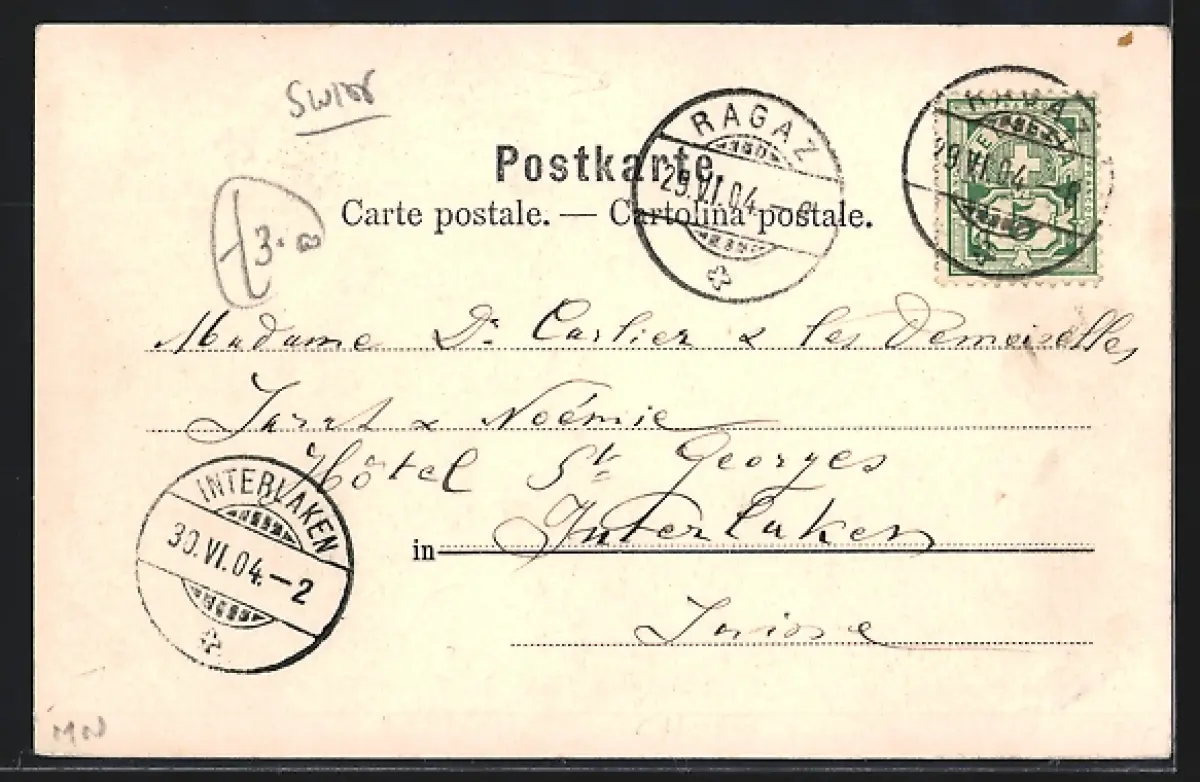 Swiss
Postkarte.
Carte postale. — Cartolina postale.
RAGAZ
29.VI.04.
RAGAZ
29.VI.04
5
3.
Madame Dr Carlier & les Demoiselles
& Noémie
Hôtel St Georges
in Interlaken
Suisse
INTERLAKEN
30.VI.04.—2
MN